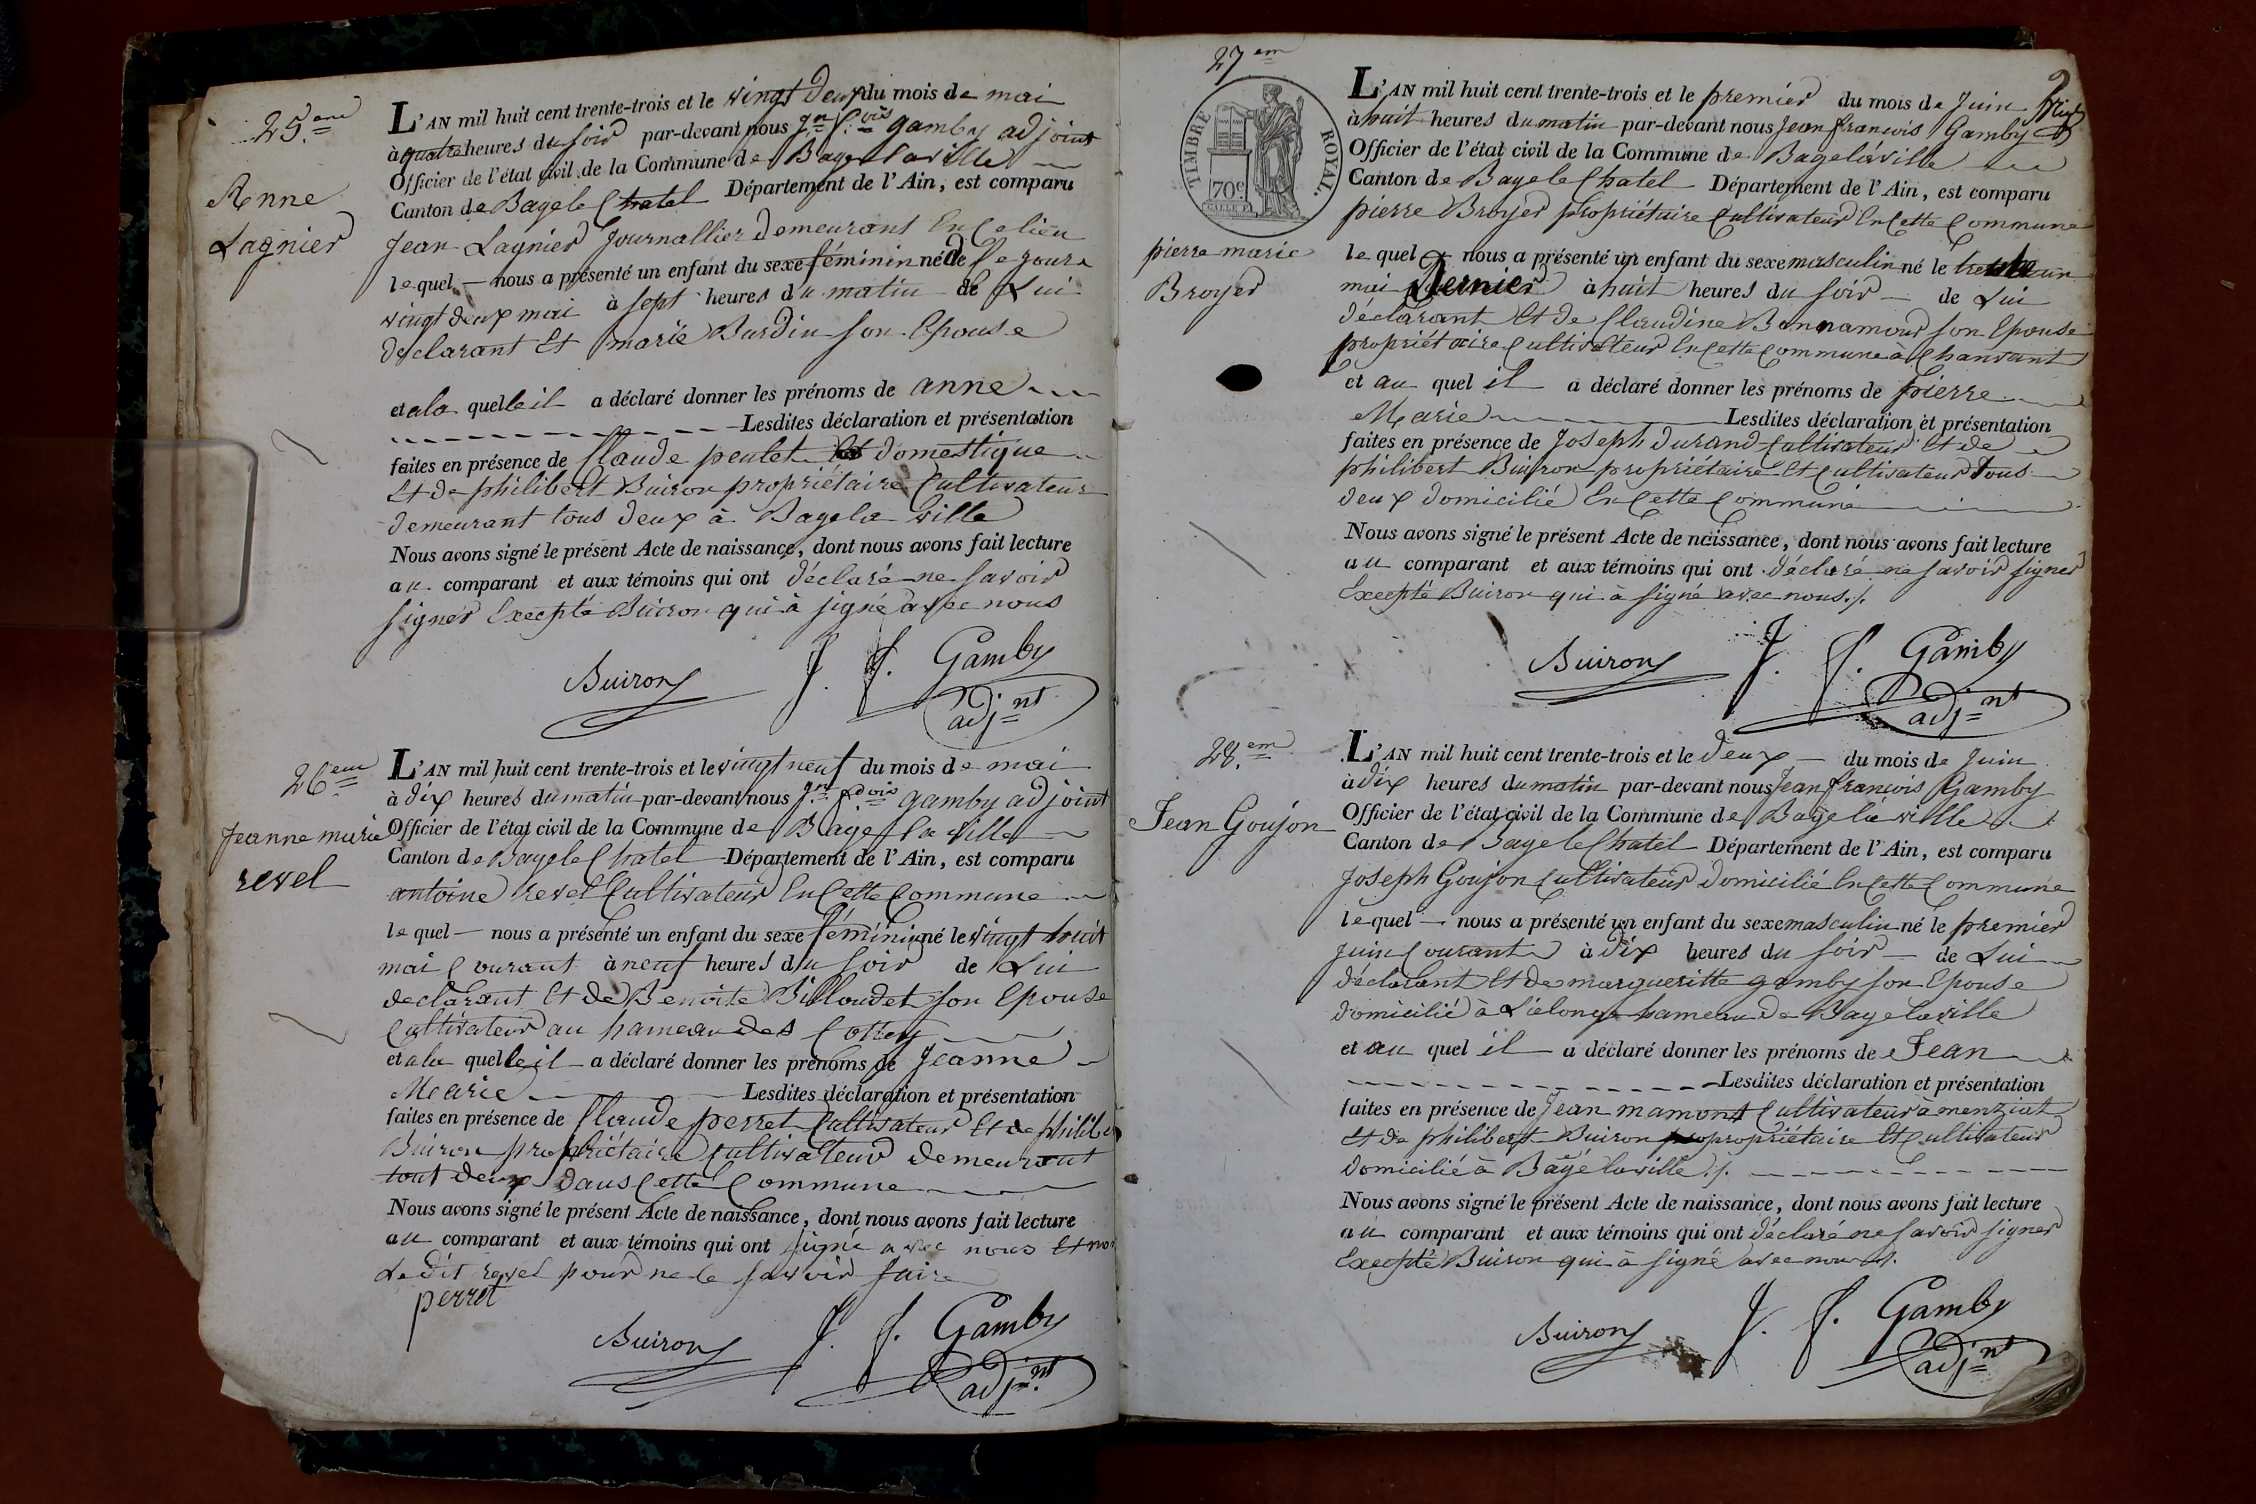 25.eme
Anne
Lagnier
L'AN mil huit cent trente-trois et le vingt deux du mois de mai
à quatre heures du soir par-devant nous Jn fois gamby adjoint
Officier de l'état civil de la Commune de Bagé la ville
Canton de Bagé le Chatel Département de l'Ain, est comparu
Jean Lagnier Journallier demeurant En Ce lieu
lequel nous a présenté un enfant du sexe féminin né de Ce jour
vingt deux mai à sept heures du matin de Lui
declarant Et marie Burdin son Epouse
et a la quelle il a déclaré donner les prénoms de anne
Lesdites déclaration et présentation
faites en présence de Claude peulet domestique
Et de philibert Buiron propriétaire Cultivateur
demeurant tous deux à Bagé la Ville
Nous avons signé le présent Acte de naissance, dont nous avons fait lecture
au comparant et aux témoins qui ont déclaré ne savoir
signer Excepté Buiron qui à signé avec nous
Buiron J. f. Gamby
adjnt
26eme
Jeanne marie
revel
L'AN mil huit cent trente-trois et le vingt neuf du mois de mai
à dix heures du matin par-devant nous Jn fois gamby adjoint
Officier de l'état civil de la Commune de Bagé la Ville
Canton de Bagé le Chatel Département de l'Ain, est comparu
antoine revel Cultivateur En Cette Commune
lequel nous a présenté un enfant du sexe féminin né le vingt huit
mai Courant à neuf heures du soir de Lui
declarant Et de Benoite Billoudet son Epouse
Cultivateur au hameau des
et a la quelle il a déclaré donner les prénoms de Jeanne
Marie Lesdites déclaration et présentation
faites en présence de Claude perret Cultivateur Et de philibe
Buiron propriétaire Cultivateur demeurant
tout deux dans Cette Commune
Nous avons signé le présent Acte de naissance, dont nous avons fait lecture
au comparant et aux témoins qui ont signé avec nous Et non
Le dit revel pour ne le savoir faire
perret
Buiron J. f. Gamby
adjnt
27em
TIMBRE ROYAL.
70c
pierre marie
Broyer
L'AN mil huit cent trente-trois et le premier du mois de Juin
à huit heures du matin par-devant nous Jean francois Gamby
Officier de l'état civil de la Commune de Bagé la ville
Canton de Bagé le Chatel Département de l'Ain, est comparu
pierre Broyer propriétaire Cultivateur En Cette Commune
lequel nous a présenté un enfant du sexe masculin né le trente un
mai Dernier à huit heures du soir de Lui
déclarant Et de Claudine Bonnamour son Epouse
propriétaire Cultivateur En Cette Commune à Chanvant
et au quel il a déclaré donner les prénoms de pierre
Marie Lesdites déclaration et présentation
faites en présence de Joseph durand Cultivateur Et de
philibert Buiron propriétaire Et Cultivateur tous
deux domicilié En Cette Commune
Nous avons signé le présent Acte de naissance, dont nous avons fait lecture
au comparant et aux témoins qui ont déclaré ne savoir signer
Excepté Buiron qui à signé avec nous./.
Buiron J. f. Gamby
adjnt
28.em
Jean Goujon
L'AN mil huit cent trente-trois et le deux du mois de Juin
à dix heures du matin par-devant nous Jean francois Gamby
Officier de l'état civil de la Commune de Bagé la ville
Canton de Bagé le Chatel Département de l'Ain, est comparu
Joseph Goujon Cultivateur domicilié En Cette Commune
lequel nous a présenté un enfant du sexe masculin né le premier
juin Courant à dix heures du soir de Lui
déclarant Et de margueritte gamby son Epouse
domicilié à hameau de Bagé la ville
et au quel il a déclaré donner les prénoms de Jean
Lesdites déclaration et présentation
faites en présence de Jean mamont Cultivateur à menziat
Et de philibert Buiron propropriétaire Et Cultivateur
domicilié à Bagé la ville./.
Nous avons signé le présent Acte de naissance, dont nous avons fait lecture
au comparant et aux témoins qui ont déclaré ne savoir signer
Excepté Buiron qui à signé avec nous./.
Buiron J. f. Gamby
adjnt